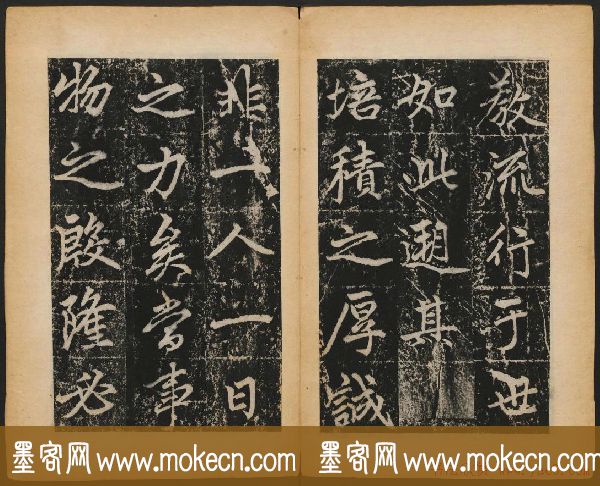 教流行于世
如此遡其
培積之厚誠
非一人一日
之力矣當事
物之殷隆必
墨客网 www.mokecn.com
墨客网 www.mokecn.com